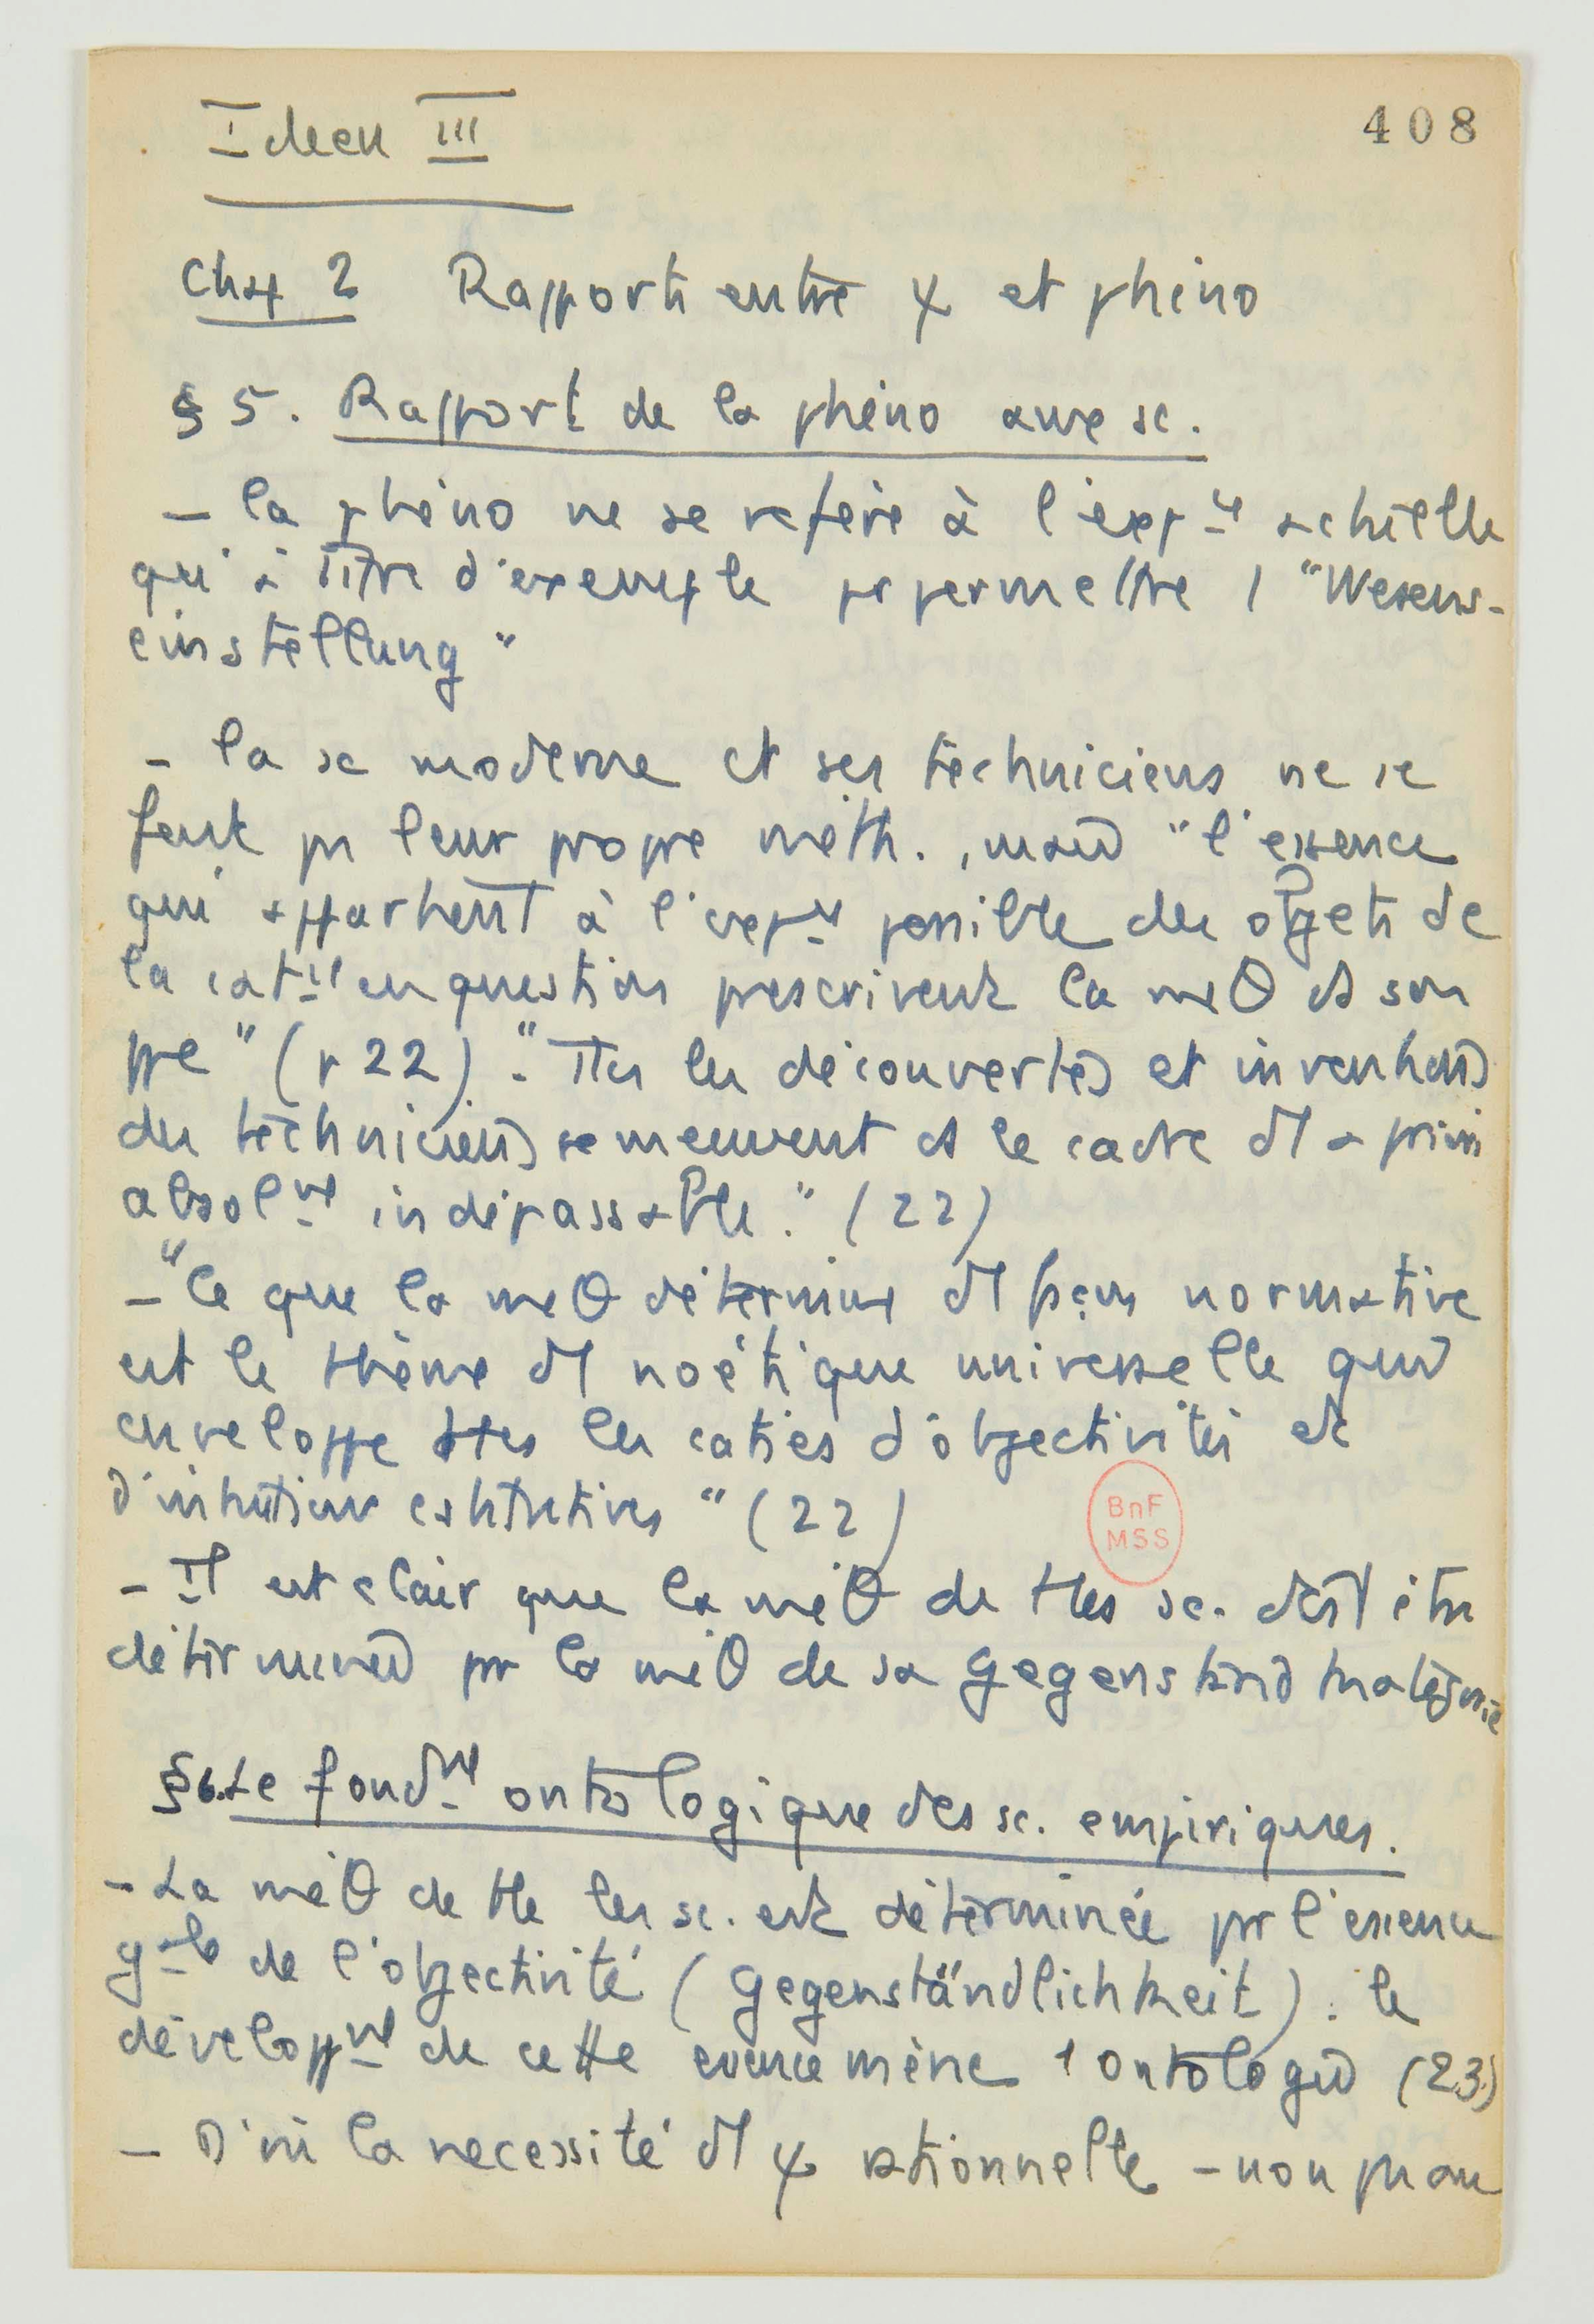 Ideen III
408
Chap 2 Rapports entre ψ et phéno
§ 5. Rapport de la phéno aux sc.
– la phéno ne se réfère à l'exp^ce actuelle
qu'à titre d'exemple pr permettre 1 "Wesens-
einstellung"
– la sc moderne et ses techniciens ne se
font pas leur propre méth., mais "l'essence
qui appartient à l'exp^ce possible des objets de
la cat^ie en question prescrivent la méθ et son
ppe" (p 22). "Ttes les découvertes et inventions
des techniciens se meuvent ds le cadre d'1 a priori
absol^mt indépassable." (22)
– "Ce que la méθ détermine d'1 façon normative
est le thème d'1 noétique universelle qui
enveloppe ttes les caties d'objectivités et
d'intuitions constitutives" (22)
BnF
MSS
– Il est clair que la méθ de ttes sc. doit être
déterminée pr la méθ de sa Gegenstand
§6. Le fond^mt ontologique des sc. empiriques.
– La méθ de tte les sc. est déterminée pr l'essence
g^ale de l'objectivité (Gegenständlichkeit). le
développ^mt de cette essence mène 1 ontologie (23)
– D'où la nécessité d'1 ψ rationnelle – non pas au